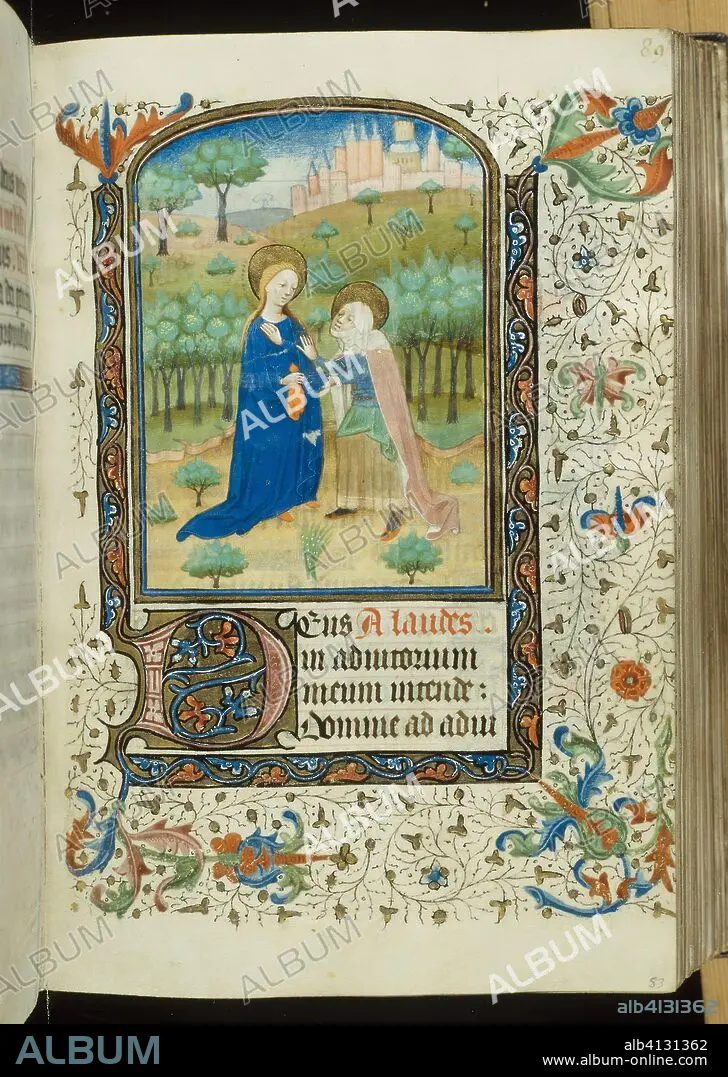 89
Deus A laudes.
in adiutorium
meum intende:
Domine ad adiu
83
alb4131362
ALBUM
alb4131362
www.album-online.com